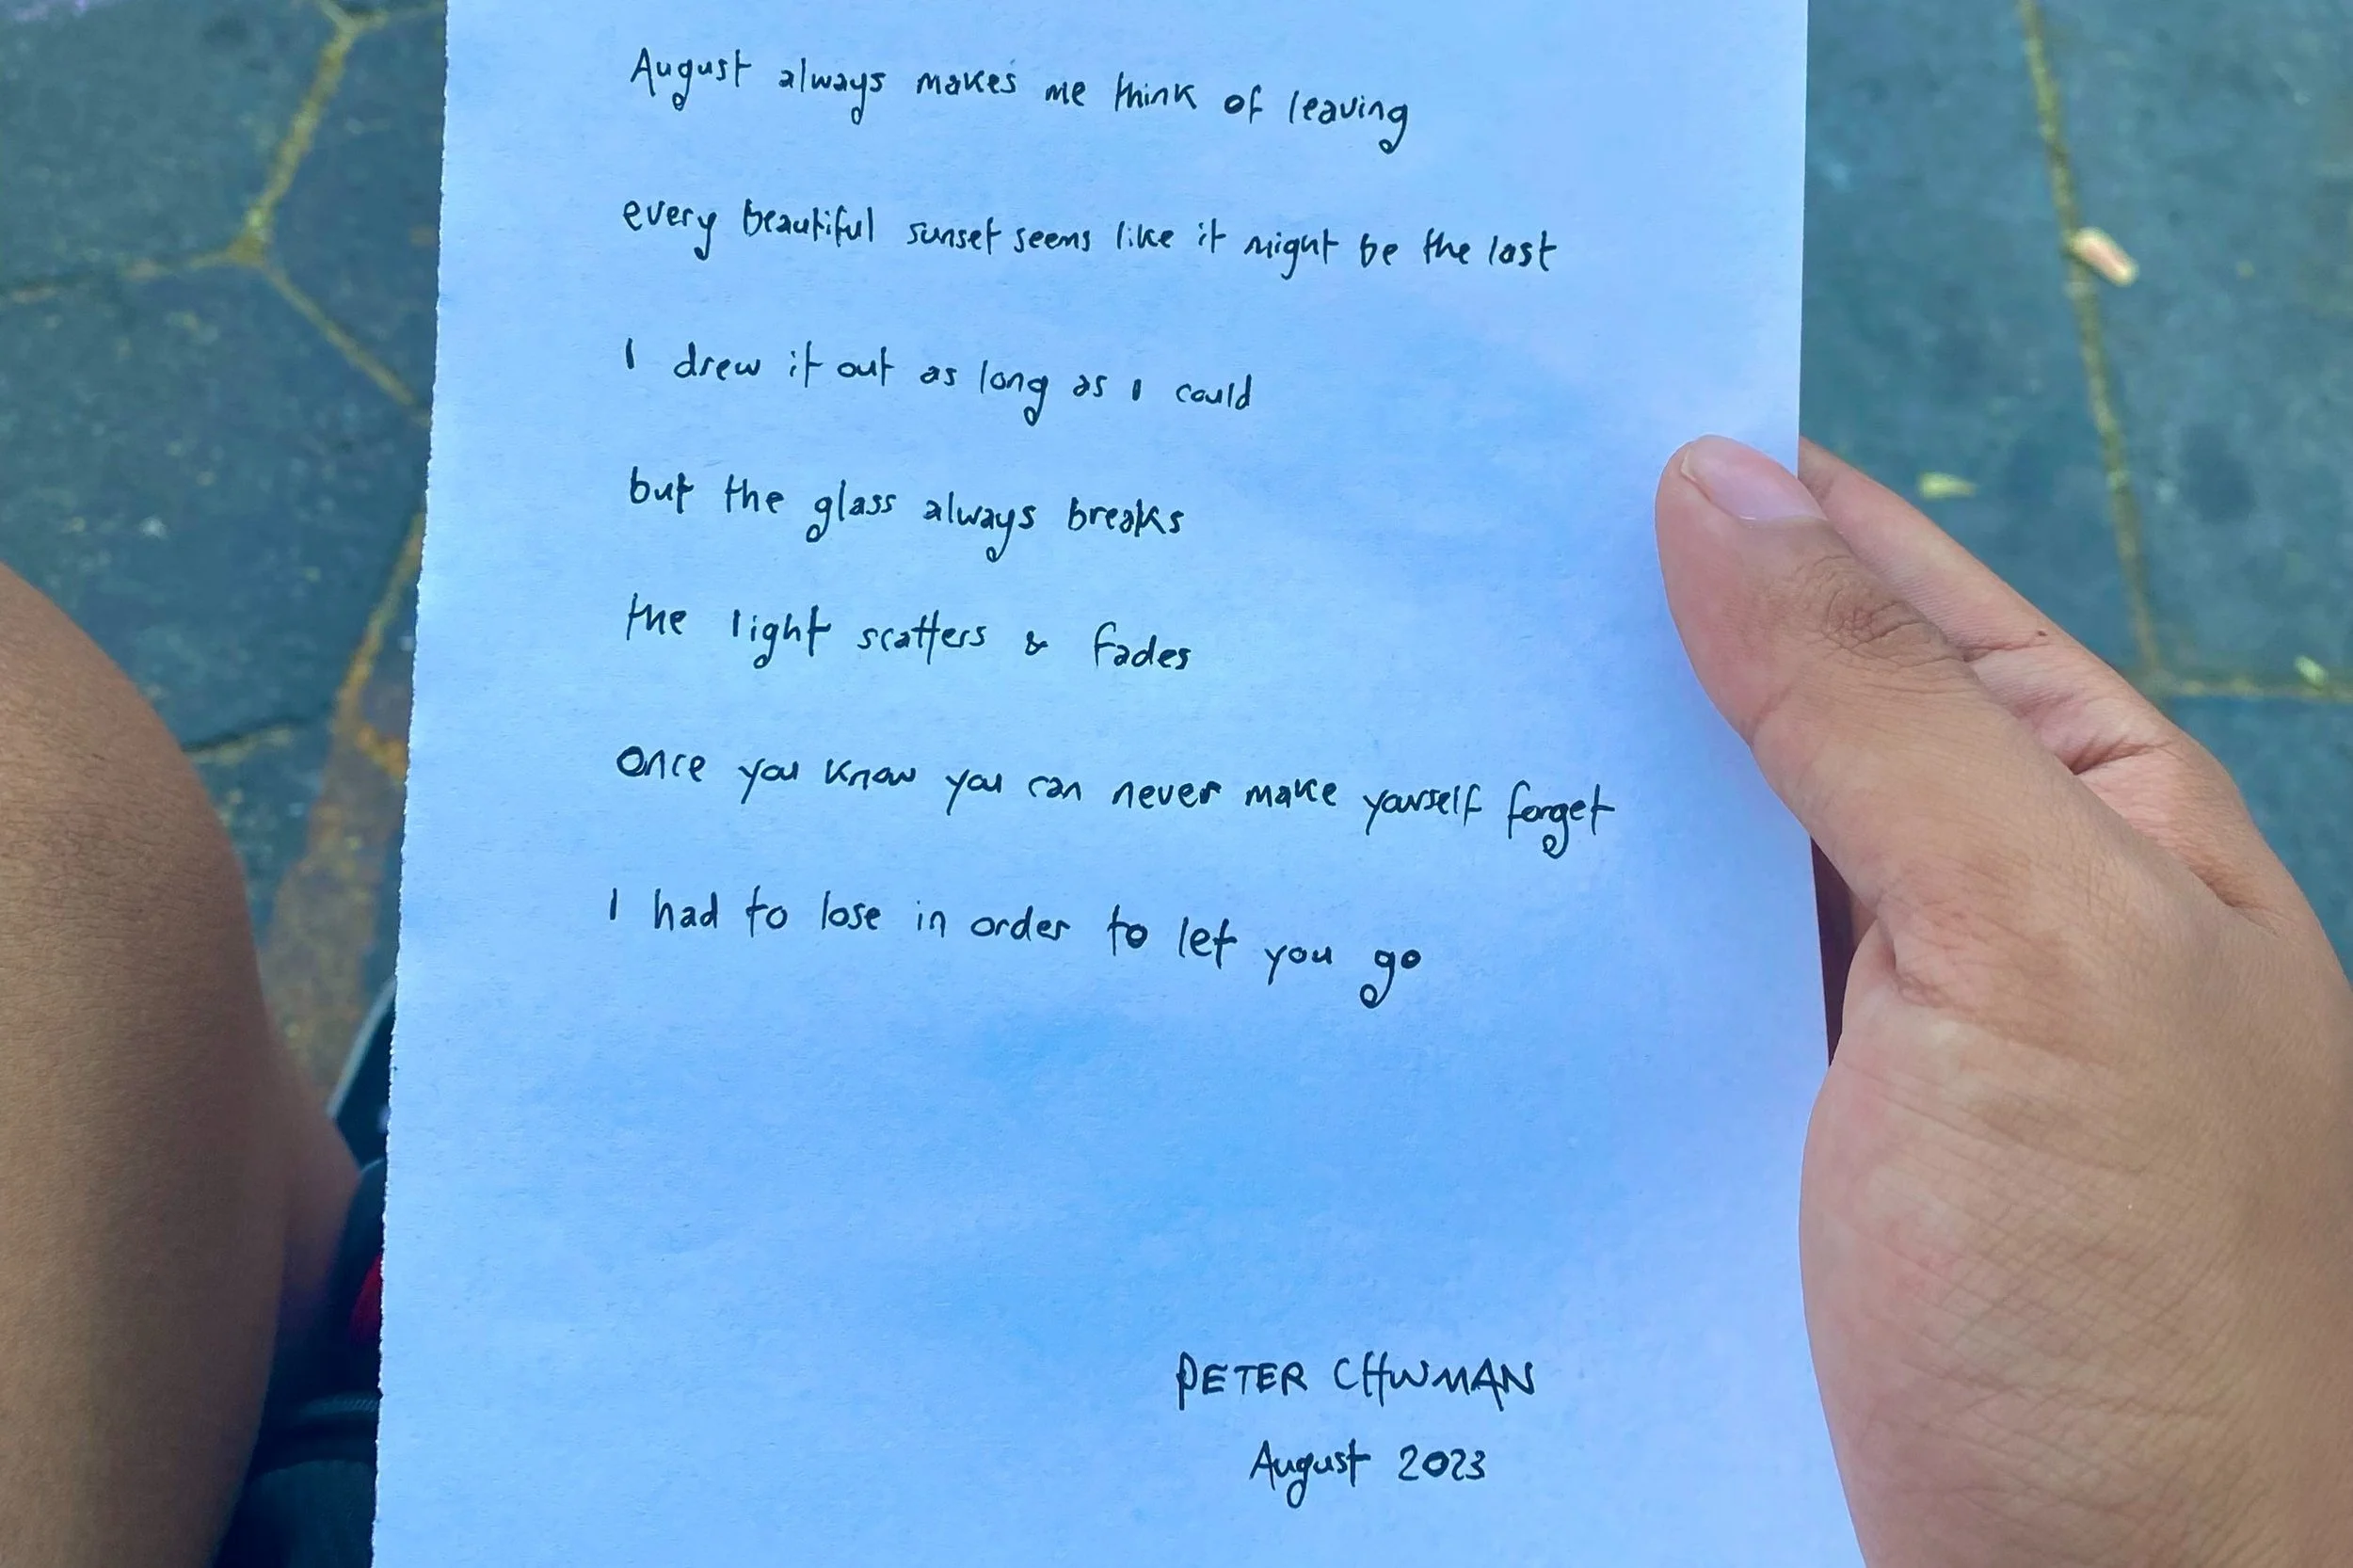 August always makes me think of leaving
every beautiful sunset seems like it might be the last
I drew it out as long as I could
but the glass always breaks
the light scatters & fades
Once you know you can never make yourself forget
I had to lose in order to let you go
PETER CHWMAN
August 2023